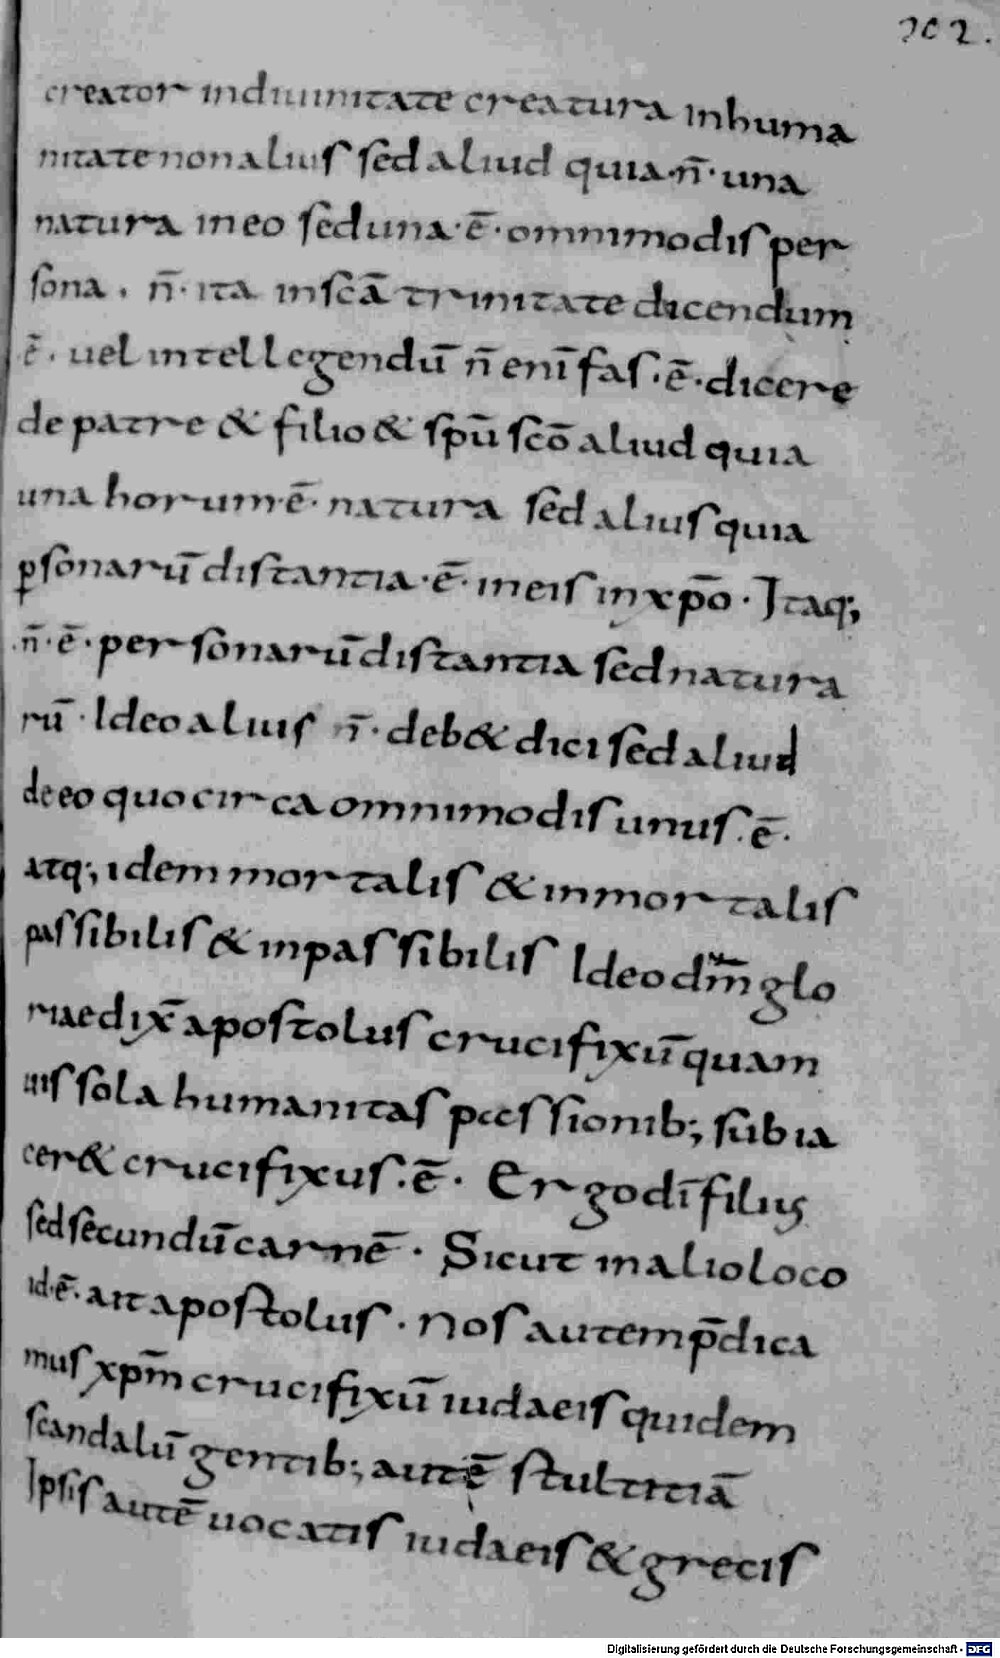 202.
creator indiuinitate creatura inhuma
nitate non alius sed aliud quia·n̄·una
natura in eo sed una·ē·omnimodis per
sona. n̄·ita in scā trinitate dicendum
ē·uel intellegendū n̄ enī fas·ē·dicere
de patre & filio & spū scō aliud quia
una horum·ē·natura sed alius quia
p̱sonarū distantia·ē·in eis in xp̄o·Itaq;
n̄·ē·personarū distantia sed natura
rū·Ideo alius n̄·deb& dici sed aliud
de eo quo circa omnimodis unus·ē·
atq; idem mortalis & inmortalis
passibilis & inpassibilis Ideo dn̄m glo
riae dix̄ apostolus crucifixū quam
uis sola humanitas passionib; subia
cer& crucifixus·ē· Ergo dī filius
sed secundū carnē· Sicut in alio loco
id·ē·ait apostolus·Nos autem p̄dica
mus xpm̄ crucifixū iudaeis quidem
scandalū gentib; autē stultitiā
Ipsis autē uocatis iudaeis & grecis
Digitalisierung gefördert durch die Deutsche Forschungsgemeinschaft - DFG